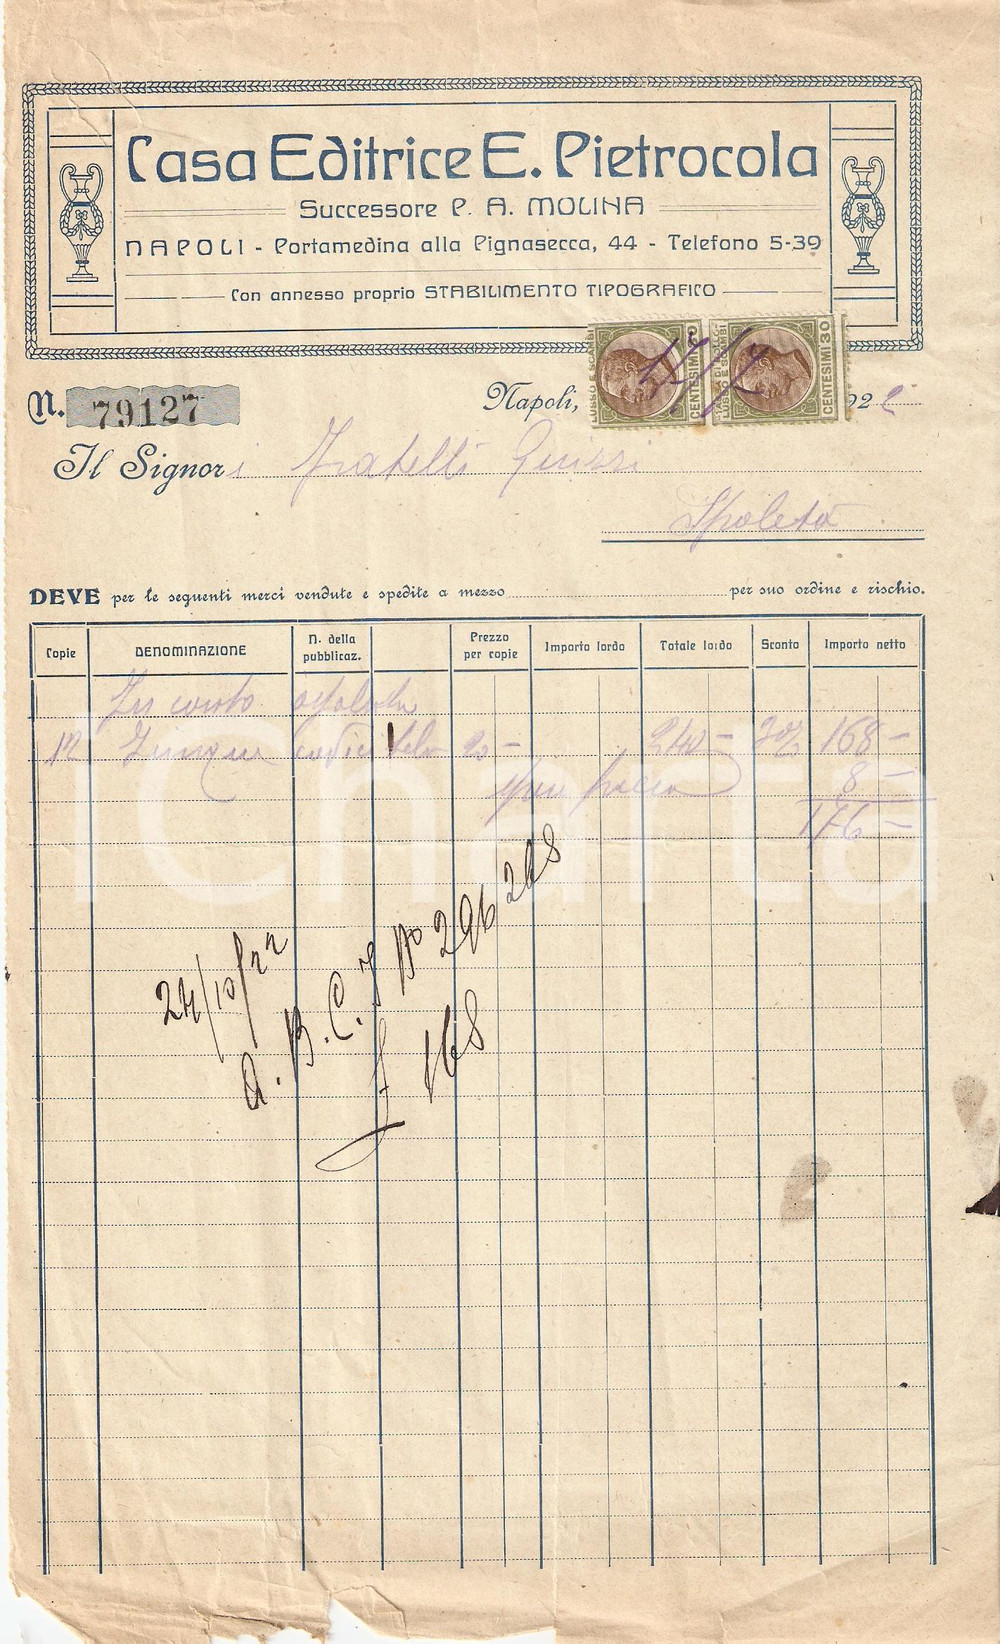 Casa Editrice E. Pietrocola
Successore P. A. MOLINA
NAPOLI - Portamedina alla Pignasecca, 44 - Telefono 5-39
Con annesso proprio STABILIMENTO TIPOGRAFICO
LUSSO E SCAMBI
CENTESIMI 30
LUSSO E SCAMBI
CENTESIMI 30
N. 79127
Napoli, 922
Il Signori Fratelli
Spoleto
DEVE per le seguenti merci vendute e spedite a mezzo per suo ordine e rischio.
Copie DENOMINAZIONE N. della pubblicaz. Prezzo per copie Importo lordo Totale lordo Sconto Importo netto
In conto
12 Lingua 20 - 240 - 30% 168 -
8 -
176 -
24/10/22
A. B. C. No 296248
£ 168
iCharta